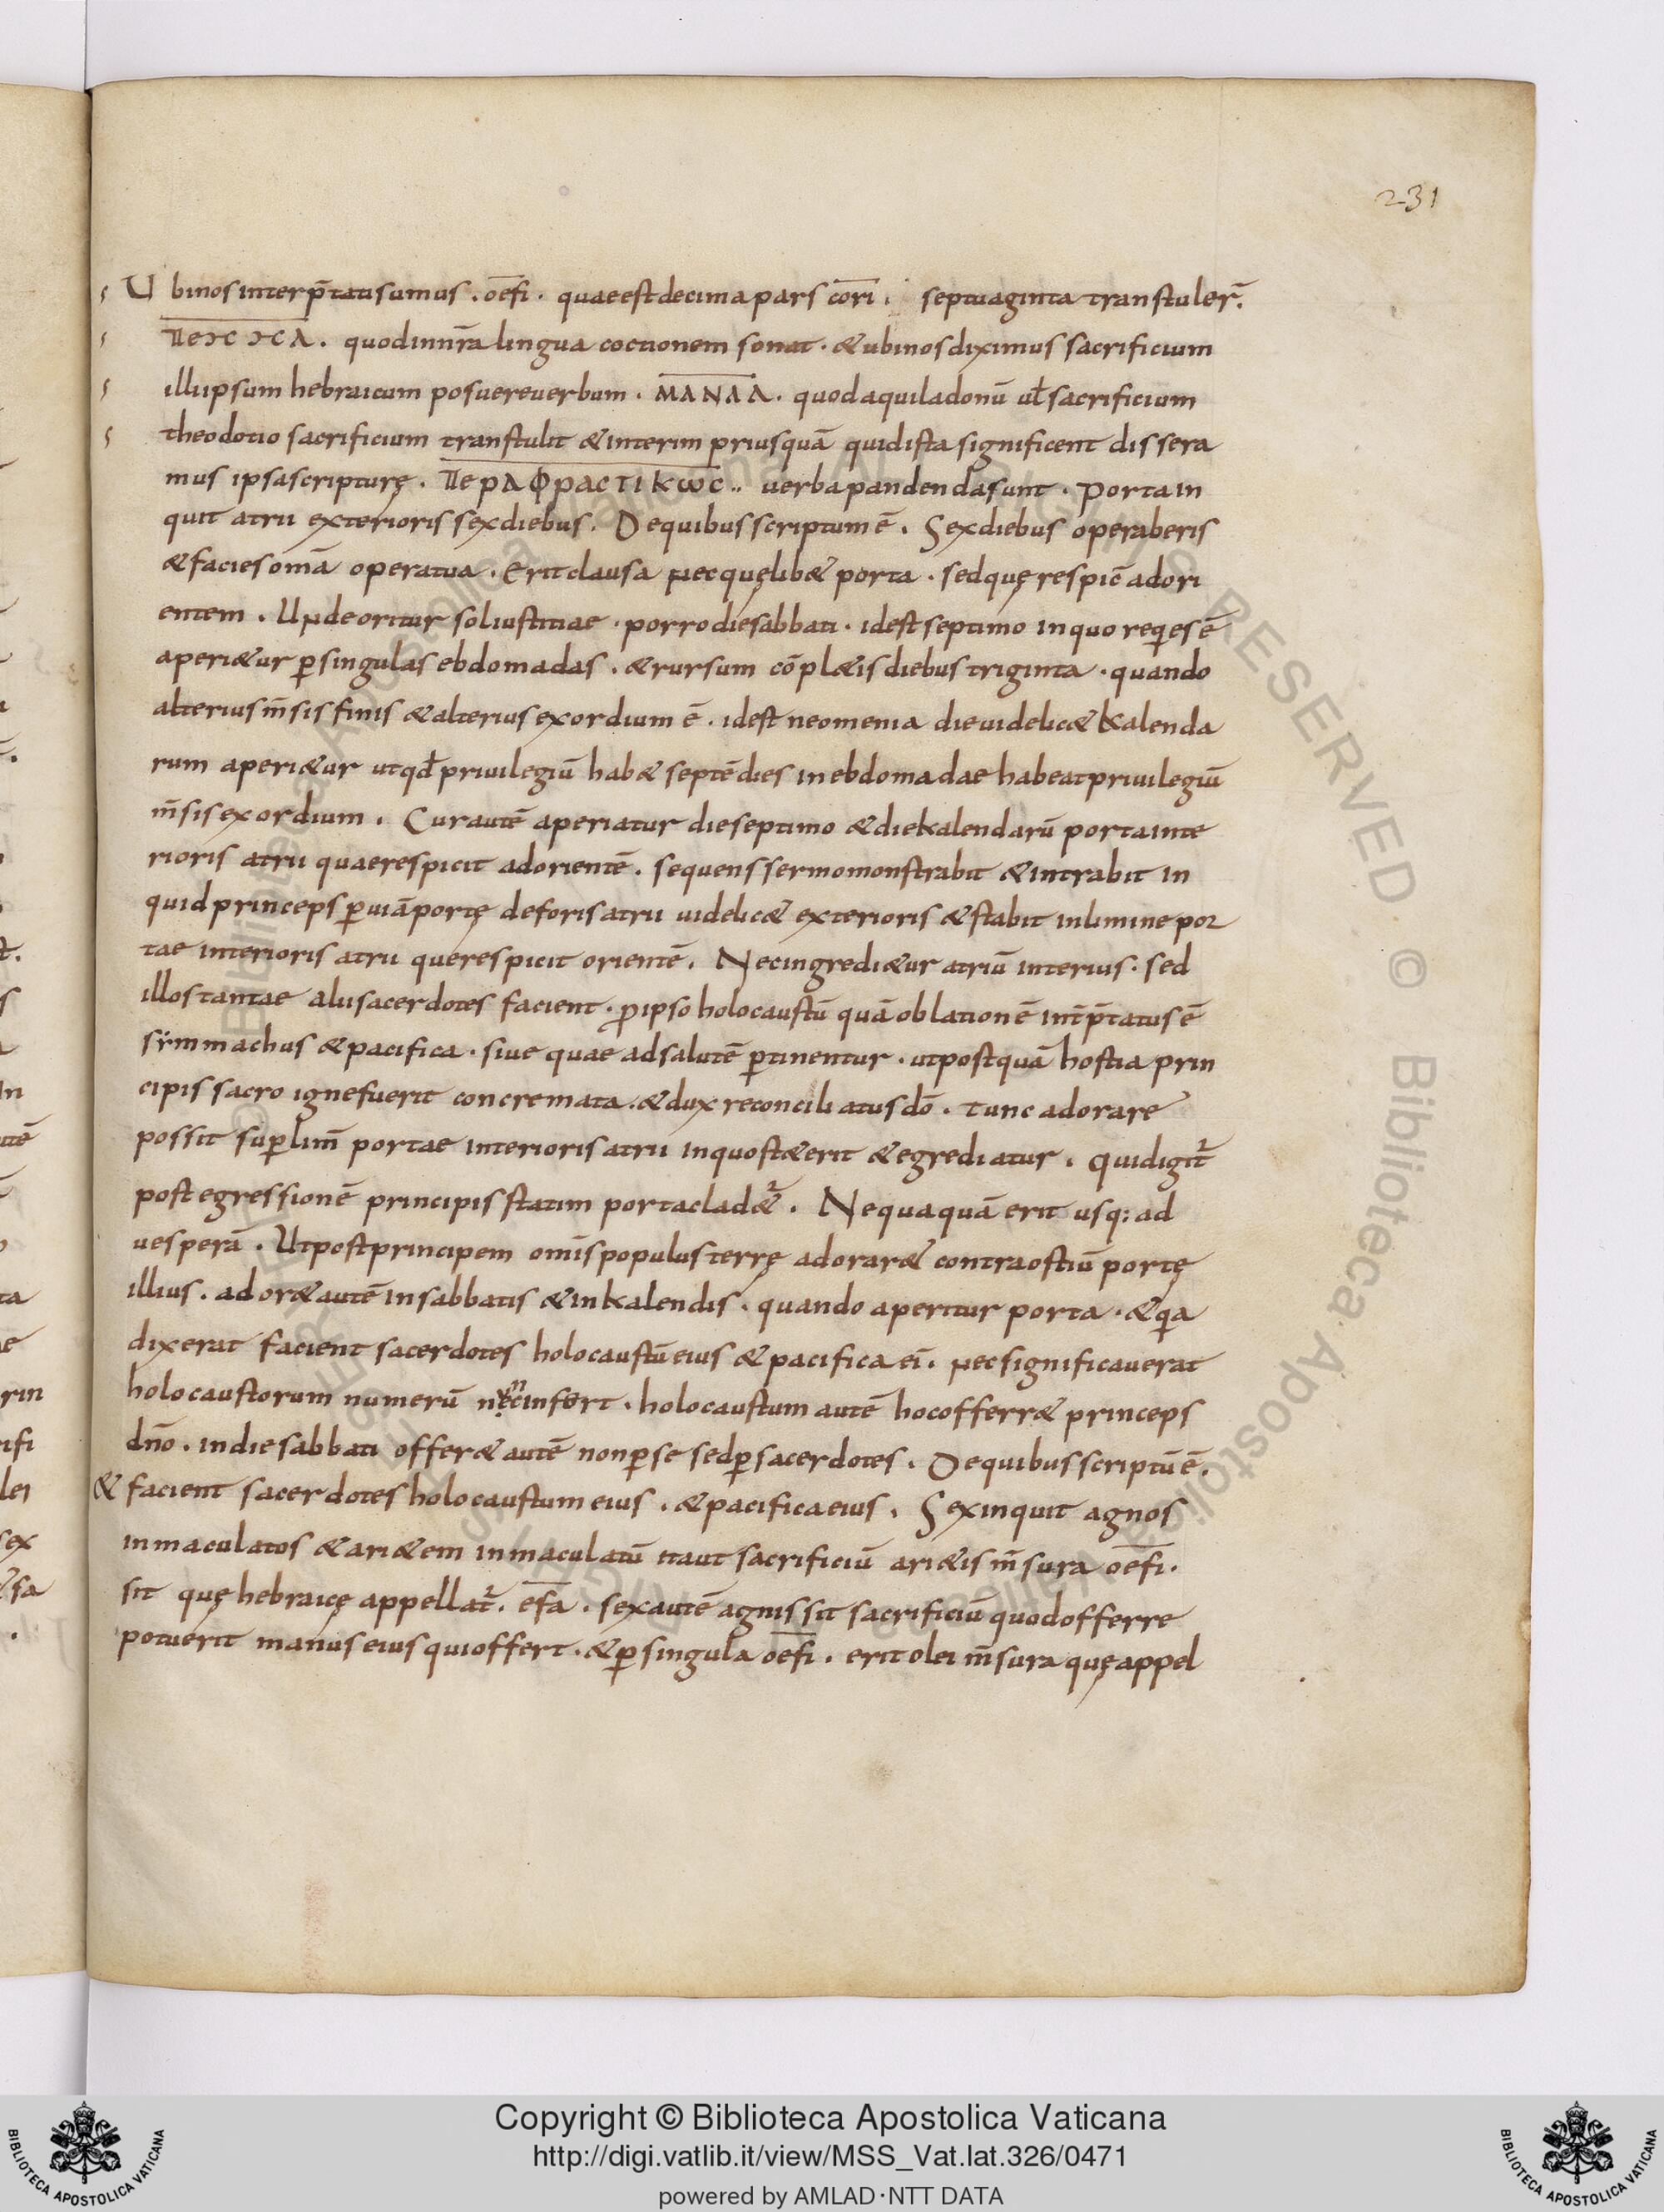 231
Ubinos interp̄tati sumus . oēfi . quae est decima pars cōri . septuaginta transtuler̄.
quod innr̄a lingua coctionem sonat . & ubi nos diximus sacrificium
illi ipsum hebraicum posuere uerbum . ΜΑΝΑΑ . quod aquila donū ul̄ sacrificium
theodotio sacrificium transtulit & interim priusquā quid ista significent dissera
mus ipsa scripturę . ΠερΑΦραςτικωc .. uerba pandenda sunt . Porta in
quit atrii exterioris sex diebus . De quibus scriptum ē . Sex diebus operaberis
& facies omā opera tua . Erit clausa nec quęlib& porta . sed quę respic̄ ad ori
entem . Unde oritur sol iustitiae . porro die sabbati . id est septimo in quo req̇es ē
aperi&ur p̱ singulas ebdomadas . & rursum cōpl&is diebus triginta . quando
alterius m̄sis finis & alterius exordium ē . id est neomenia die uidelic& kalenda
rum aperi&ur ut qd̄ priuilegiū hab& septē dies in ebdomadae habeat priuilegiū
m̄sis exordium . Cur autē aperiatur die septimo & die kalendarū porta inte
rioris atrii quae respicit ad orientē . sequens sermo monstrabit & intrabit in
quid princeps p̱ uiā portę de foris atrii uidelic& exterioris & stabit in limine por
tae interioris atrii que respicit orientē . Nec ingredi&ur atriū interius . sed
illos tantae alii sacerdotes facient . ꝓ ipso holocaustū quā oblationē int̄p̄tatus ē
sẏmmachus & pacifica . siue quae ad salutē p̱tinentur . ut postquā hostia prin
cipis sacro igne fuerit concremata . & dux reconciliatus dō . tunc adorare
possit sup̱ lim̄ portae interioris atrii in quo st&erit & egrediatur . Quid igit̄
post egressionē principis statim porta clad&̄ . Nequaquā erit usq; ad
uesperā . Ut post principem om̄is populus terrę adorar& contra ostiū portę
illius . ador& autē in sabbatis & in kalendis . quando aperitur porta . & qa
dixerat facient sacerdotes holocaustū eius & pacifica ei̅ . nec significauerat
holocaustorum numerū infert . holocaustum autē hoc offerr& princeps
dn̄o . in die sabbati offer& autē non p̱ se sed p̱ sacerdotes . De quibus scriptū ē .
& facient sacerdotes holocaustum eius . & pacifica eius . Sex inquit agnos
inmaculatos & ari&em inmaculatū ita ut sacrificiū ari&is m̄sura oēfi .
sit quę hebraicę appellat̄ . ēfa . sex autē agnis sit sacrificiū quod offerre
potuerit manus eius qui offert . & p̱ singula oēfi . erit olei m̄sura quę appel
Copyright © Biblioteca Apostolica Vaticana
http://digi.vatlib.it/view/MSS_Vat.lat.326/0471
powered by AMLAD·NTT DATA